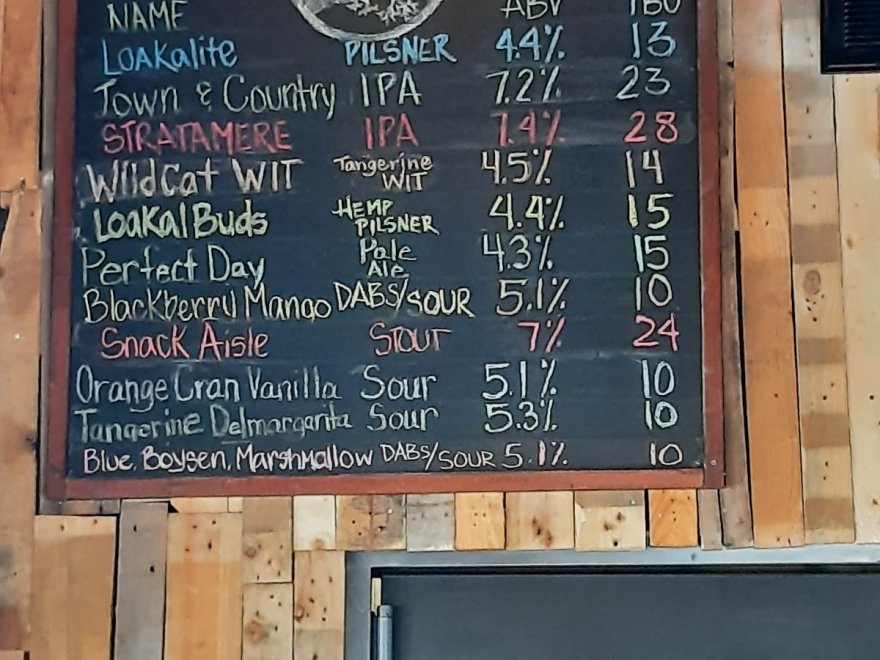 NAME ABV IBU
LOAKalite PILSNER 4.4% 13
Town & Country IPA 7.2% 23
STRATAMERE IPA 7.4% 28
WildCat WIT Tangerine WIT 4.5% 14
LoaKal Buds HEMP PILSNER 4.4% 15
Perfect Day Pale Ale 4.3% 15
Blackberry Mango DABS/SOUR 5.1% 10
Snack Aisle STOUT 7% 24
Orange Cran Vanilla Sour 5.1% 10
Tangerine Delmargarita Sour 5.3% 10
Blue, Boysen, Marshmallow DABS/SOUR 5.1% 10